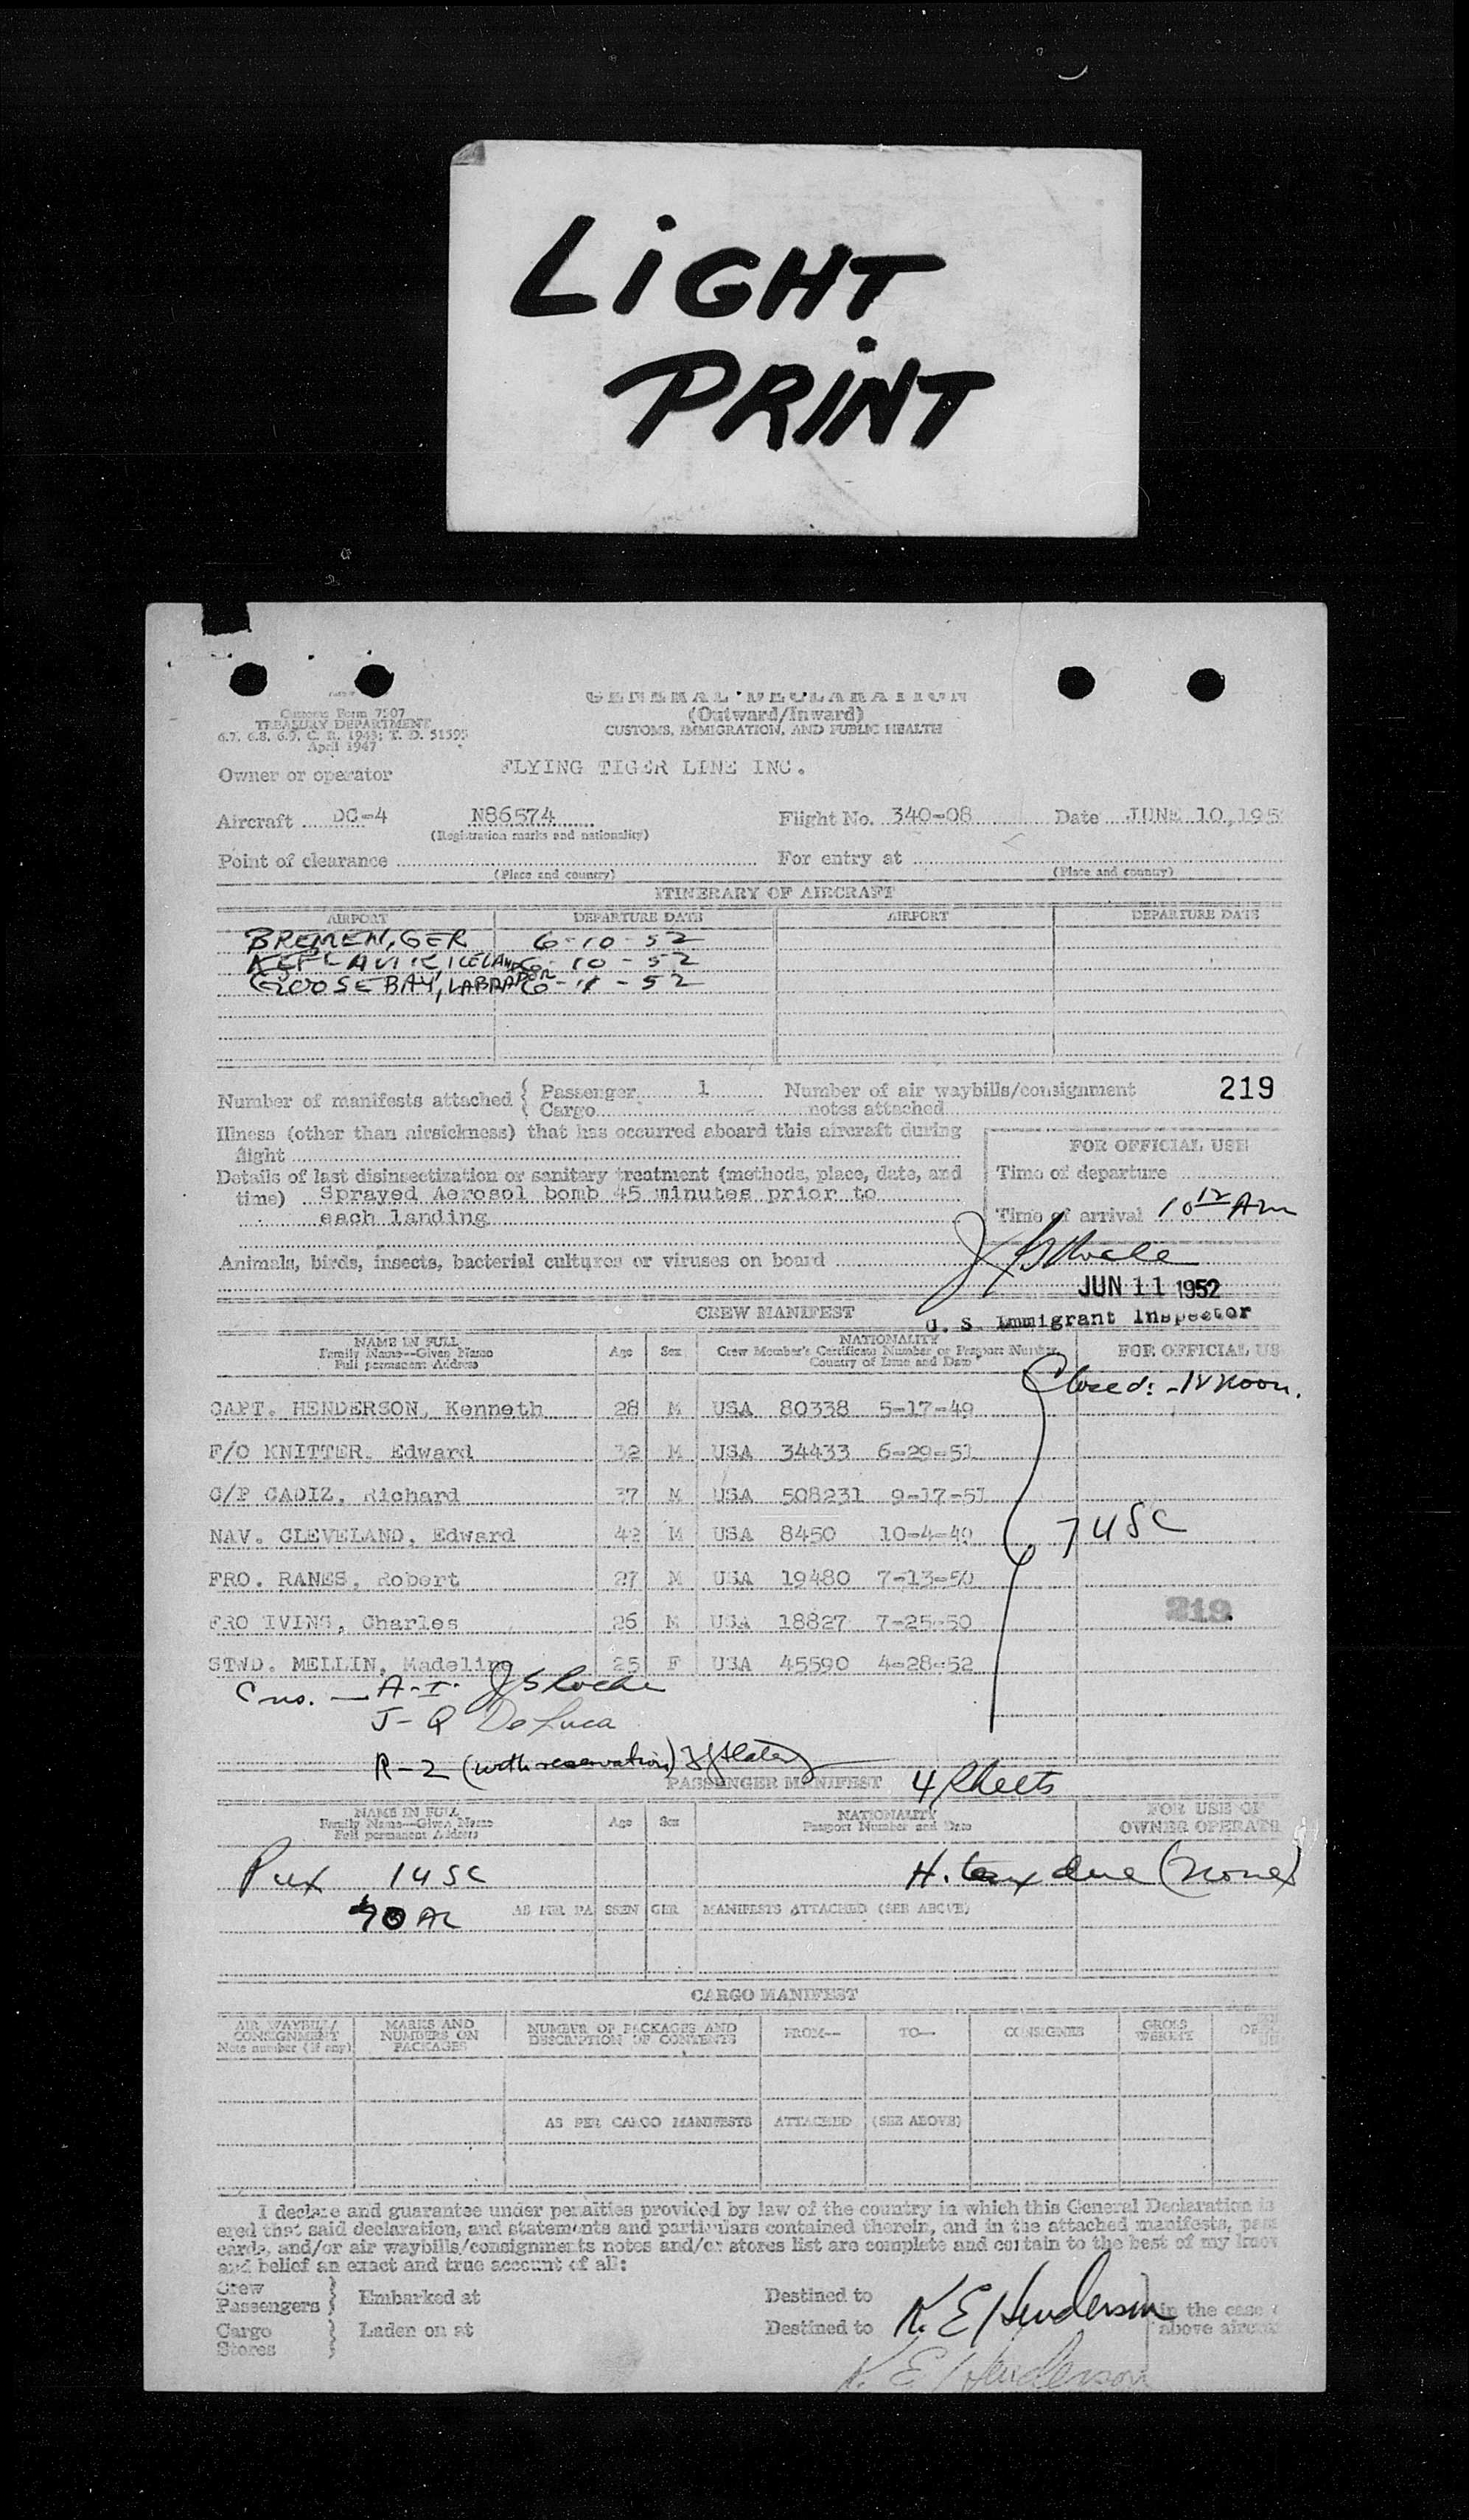 LiGHT
PRiNT
GENERAL DECLARATION
(Outward/Inward)
CUSTOMS, IMMIGRATION, AND PUBLIC HEALTH
Customs Form 7507
TREASURY DEPARTMENT
6.7, 6.8, 6.9, C. R. 1943; T. D. 51595
April 1947
Owner or operator FLYING TIGER LINE INC.
Aircraft DC-4 N86574 Flight No. 340-08 Date JUNE 10, 195
(Registration marks and nationality)
Point of clearance For entry at
(Place and country) (Place and country)
ITINERARY OF AIRCRAFT
AIRPORT DEPARTURE DATE AIRPORT DEPARTURE DATE
BREMEN, GER 6-10-52
KEFLAVIK ICELAND 6-10-52
GOOSE BAY, LABRADOR 6-11-52
Number of manifests attached { Passenger 1 Number of air waybills/consignment 219
Cargo notes attached
Illness (other than airsickness) that has occurred aboard this aircraft during
flight
FOR OFFICIAL USE
Details of last disinsectization or sanitary treatment (methods, place, date, and
time) Sprayed Aerosol bomb 45 minutes prior to
each landing
Time of departure
Time of arrival 10 12 AM
Animals, birds, insects, bacterial cultures or viruses on board
JUN 11 1952
U. S. Immigrant Inspector
CREW MANIFEST
NAME IN FULL
Family Name--Given Name
Full permanent Address
Age Sex
NATIONALITY
Crew Member's Certificate Number or Passport Number
Country of Issue and Date
FOR OFFICIAL US
Closed: - 12 noon.
CAPT. HENDERSON, Kenneth 28 M USA 80338 5-17-49
F/O KNITTER, Edward 32 M USA 34433 6-29-51
C/P CADIZ, Richard 37 M USA 508231 9-17-51
NAV. CLEVELAND, Edward 42 M USA 8450 10-4-49
7 USC
FRO. RANES, Robert 27 M USA 19480 7-13-50
FRO IVINS, Charles 26 M USA 18827 7-25-50
219
STWD. MELLIN, Madeline 25 F USA 45590 4-28-52
A-I. J S Roche
J-Q DeLuca
R-2 (with reservation)
PASSENGER MANIFEST 4 sheets
NAME IN FULL
Family Name--Given Name
Full permanent Address
Age Sex
NATIONALITY
Passport Number and Date
FOR USE OF
OWNER OPERATO
1 USC H. tax due (none)
70 AL AS PER PASSENGER MANIFESTS ATTACHED (SEE ABOVE)
CARGO MANIFEST
AIR WAYBILL/
CONSIGNMENT
Note number (if any)
MARKS AND
NUMBERS ON
PACKAGES
NUMBER OF PACKAGES AND
DESCRIPTION OF CONTENTS
FROM— TO— CONSIGNEE
GROSS
WEIGHT
AS PER CARGO MANIFESTS ATTACHED (SEE ABOVE)
I declare and guarantee under penalties provided by law of the country in which this General Declaration is
ered that said declaration, and statements and particulars contained therein, and in the attached manifests, pass
cards, and/or air waybills/consignments notes and/or stores list are complete and contain to the best of my know
and belief an exact and true account of all:
Crew
Passengers } Embarked at Destined to
Cargo
Stores } Laden on at Destined to
K. E. Henderson
in the case
above aircraf
K. E. Henderson